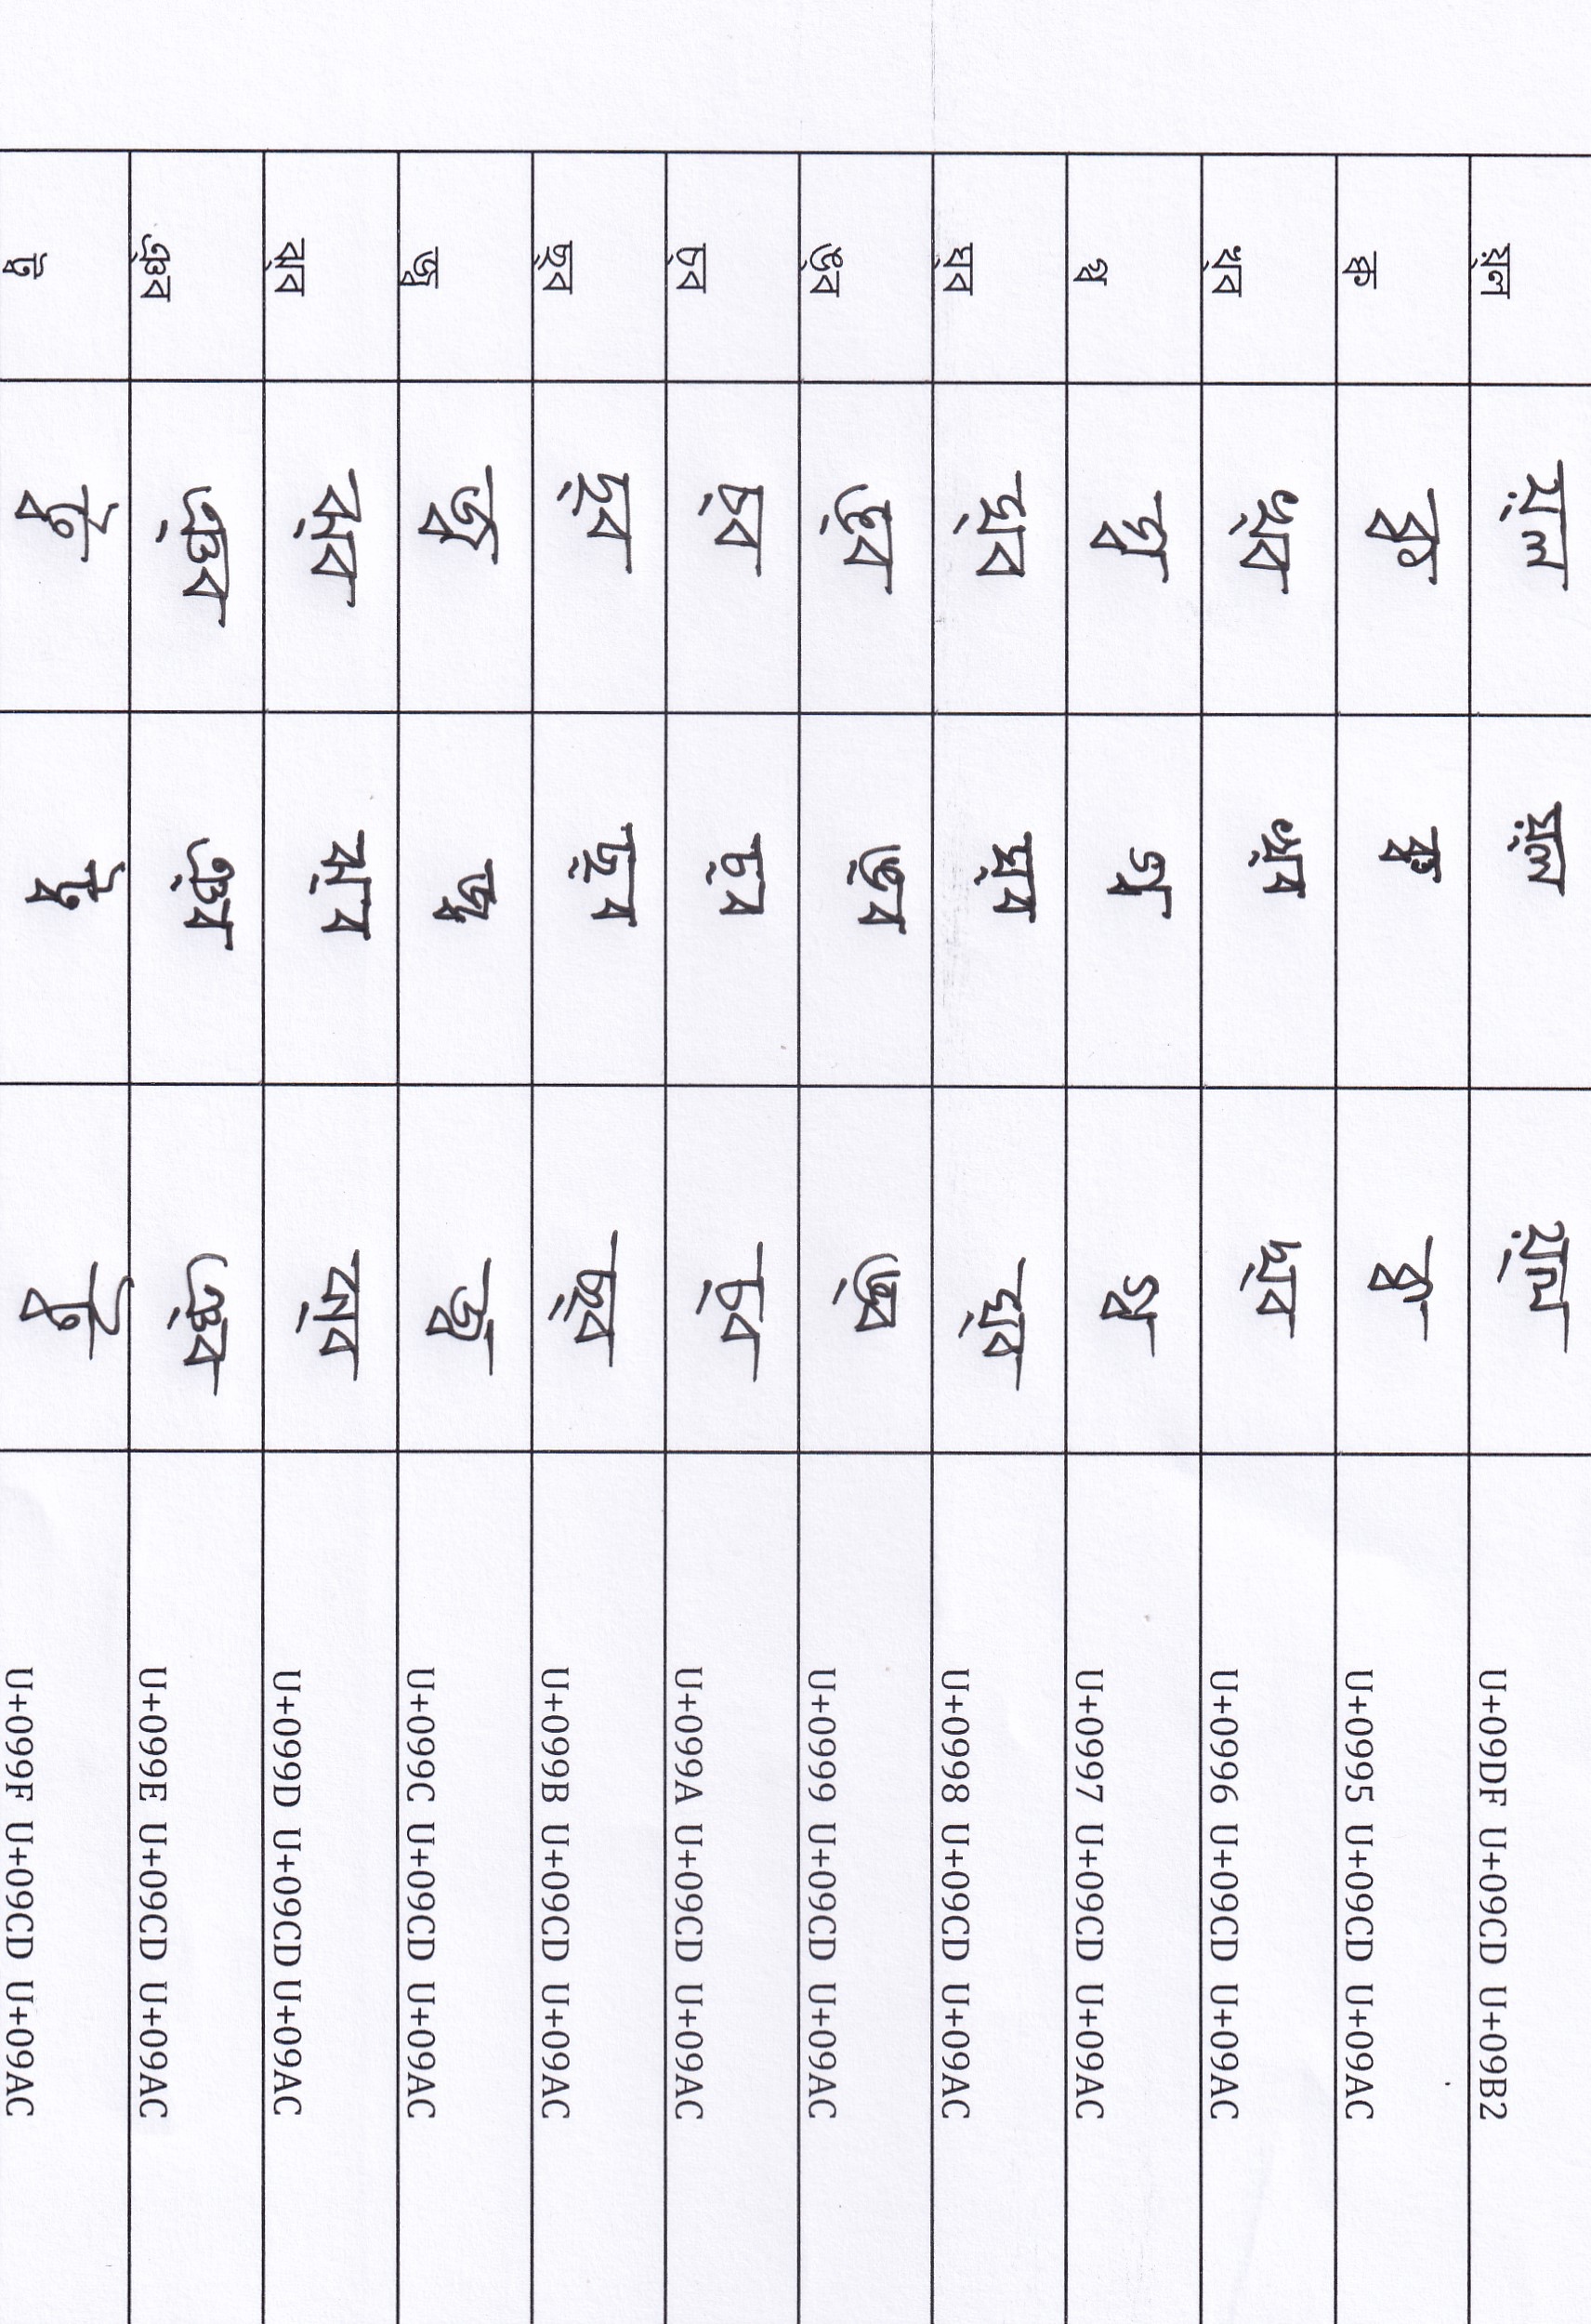 য়্ল য়্ল য়্ল য়্ল U+09DF U+09CD U+09B2
ক্ব ক্ব ক্ব ক্ব U+0995 U+09CD U+09AC
খ্ব খ্ব খ্ব খ্ব U+0996 U+09CD U+09AC
গ্ব গ্ব গ্ব গ্ব U+0997 U+09CD U+09AC
ঘ্ব ঘ্ব ঘ্ব ঘ্ব U+0998 U+09CD U+09AC
ঙ্ব ঙ্ব ঙ্ব ঙ্ব U+0999 U+09CD U+09AC
চ্ব চ্ব চ্ব চ্ব U+099A U+09CD U+09AC
ছ্ব ছ্ব ছ্ব ছ্ব U+099B U+09CD U+09AC
জ্ব জ্ব জ্ব জ্ব U+099C U+09CD U+09AC
ঝ্ব ঝ্ব ঝ্ব ঝ্ব U+099D U+09CD U+09AC
ঞ্ব ঞ্ব ঞ্ব ঞ্ব U+099E U+09CD U+09AC
ট্ব ট্ব ট্ব ট্ব U+099F U+09CD U+09AC